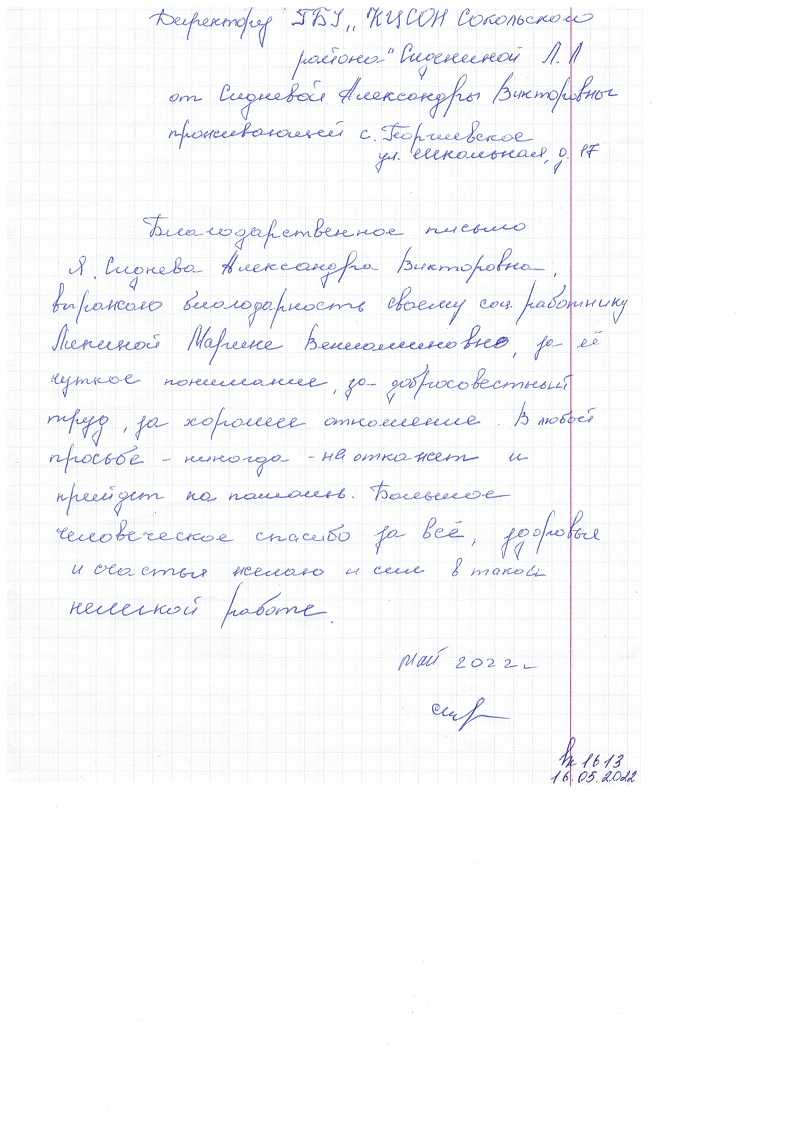 Директору ГБУ „КЦСОН Сокольского
района" Сидниной Л.Л
от Сидневой Александры Викторовны
проживающей с. Георгиевское
ул. Школьная, д. 17
Благодарственное письмо
Я, Сиднева Александра Викторовна,
выражаю благодарность своему соц. работнику
Лепиной Марине Вениаминовне, за её
чуткое понимание, за добросовестный
труд, за хорошее отношение. В любой
просьбе - никогда - не откажет и
прийдет на помощь. Большое
человеческое спасибо за всё, здоровья
и счастья желаю и сил в такой
нелегкой работе.
май 2022г.
вх 1613
16.05.2022